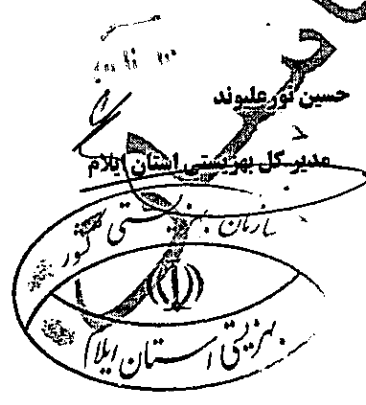 حسین نورعلیوند
مدیر کل بهزیستی استان ایلام
سازمان بهزیستی کشور
بهزیستی استان ایلام